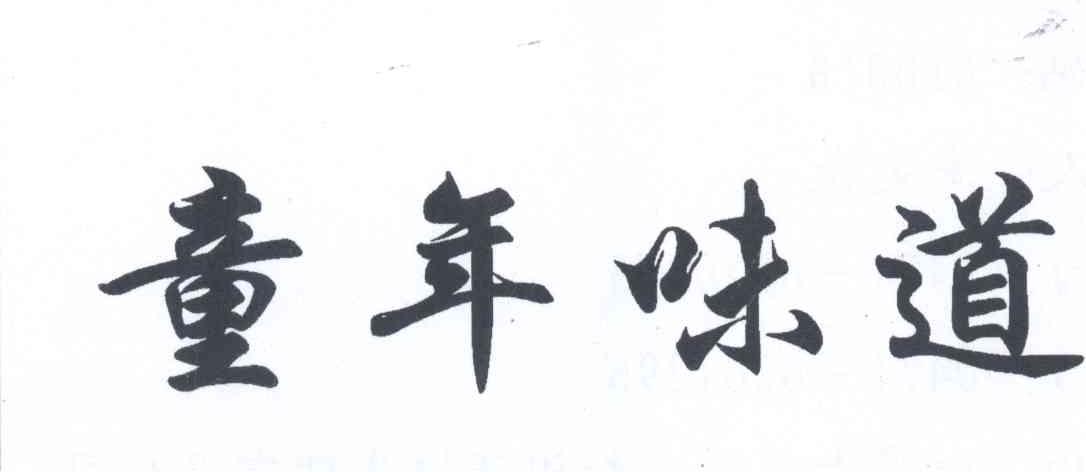 童年味道